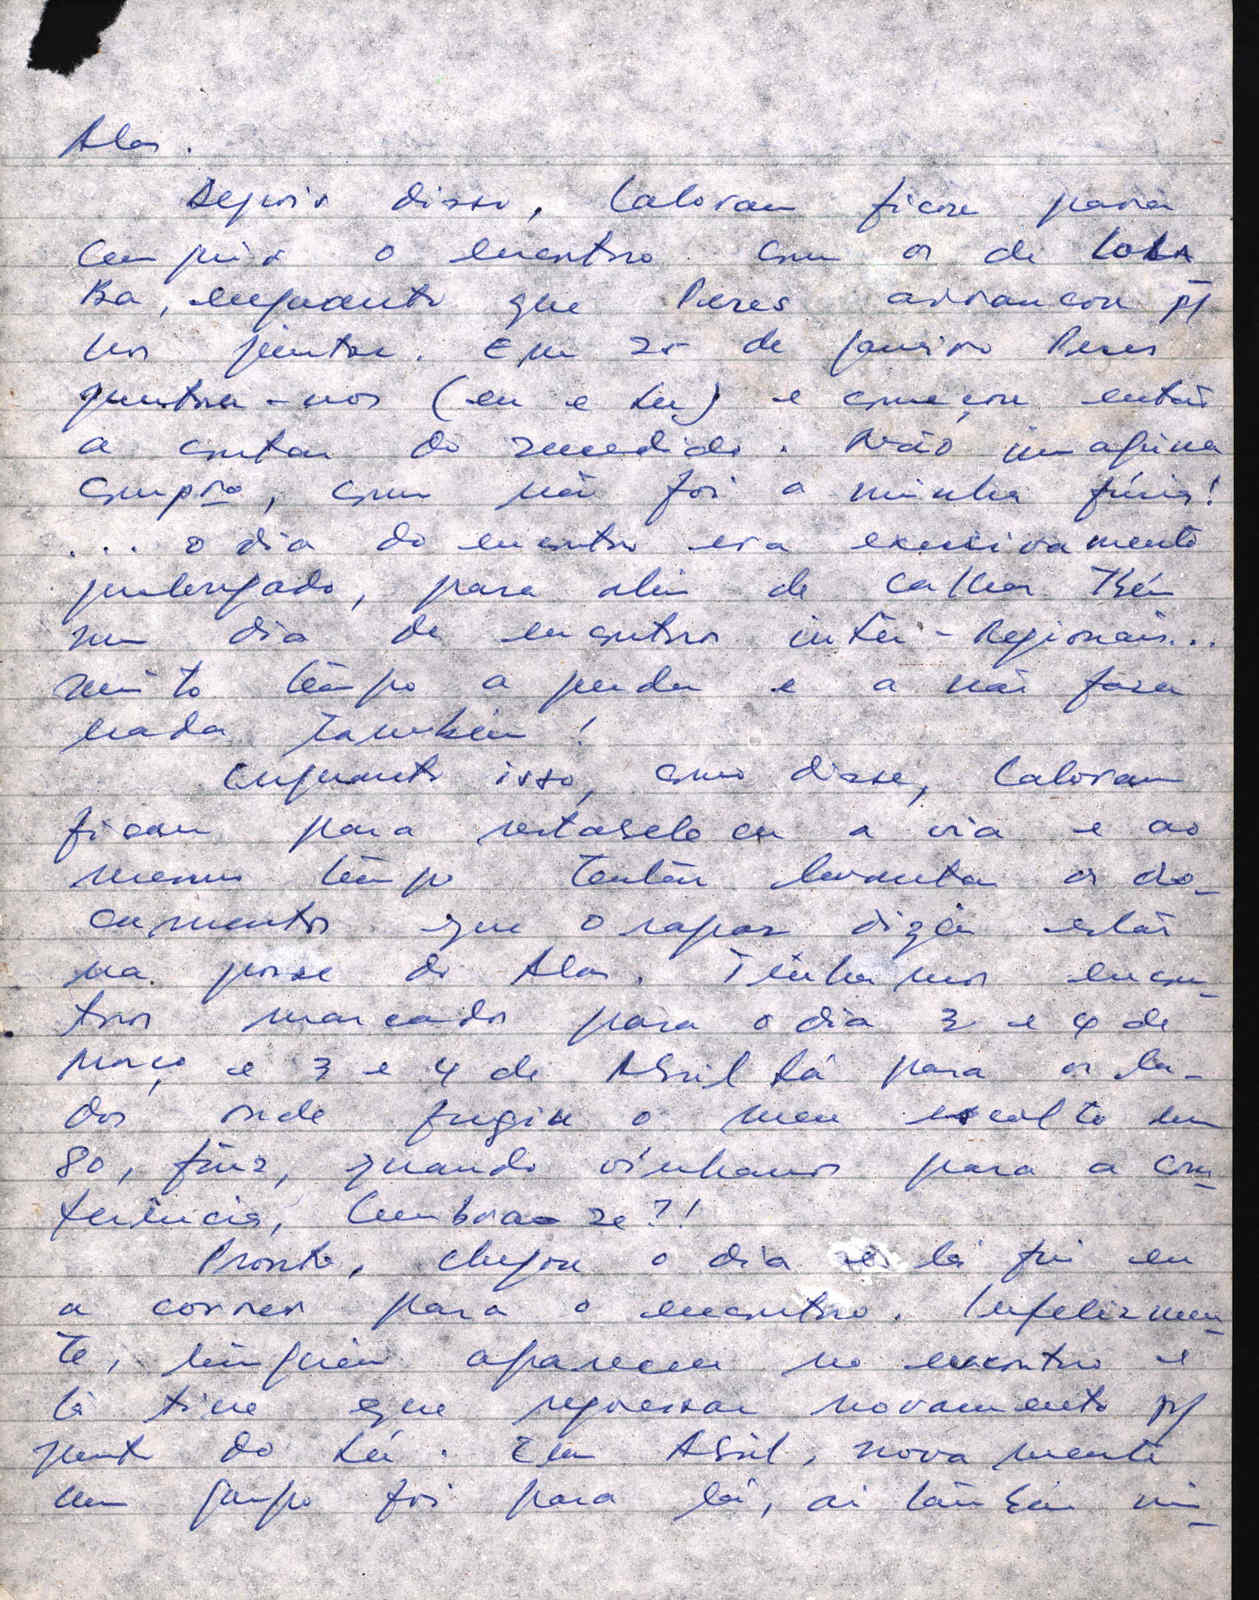 Alas.
Depois disso, Caloram ficou para
cumprir o encontro com os de LOLA
BA, enquanto que Peres arrancou p/
nos juntar. Em 25 de Janeiro Peres
juntou-nos (eu e Lu) e começou então
a contar do sucedido. Não imagina
compro, como não foi a minha fúria!
... o dia do encontro era excessivamente
prolongado, para além de calhar Bém
num dia de encontro inter-Regionais...
muito têmpo a perder e a não fazer
nada também!
Enquanto isso, como disse, Caloram
ficou para restabelecer a via e ao
mesmo têmpo tentar levantar os do-
cumentos que o rapaz dizia estar
na posse do Alas. Tinhamos encon-
tros marcados para o dia 3 e 4 de
Março e 3 e 4 de Abril lá para os la-
dos onde fugiu o meu escolto em
80, fins, quando vinhamos para a con-
ferência, lembra-se?!
Pronto, chegou o dia lá fui eu
a correr para o encontro. Infelizmen-
te, ninguém apareceu no encontro e
lá tive que regressar novamente p/
junto do Lu. Em Abril, novamente
um grupo foi para lá, aí também ni-